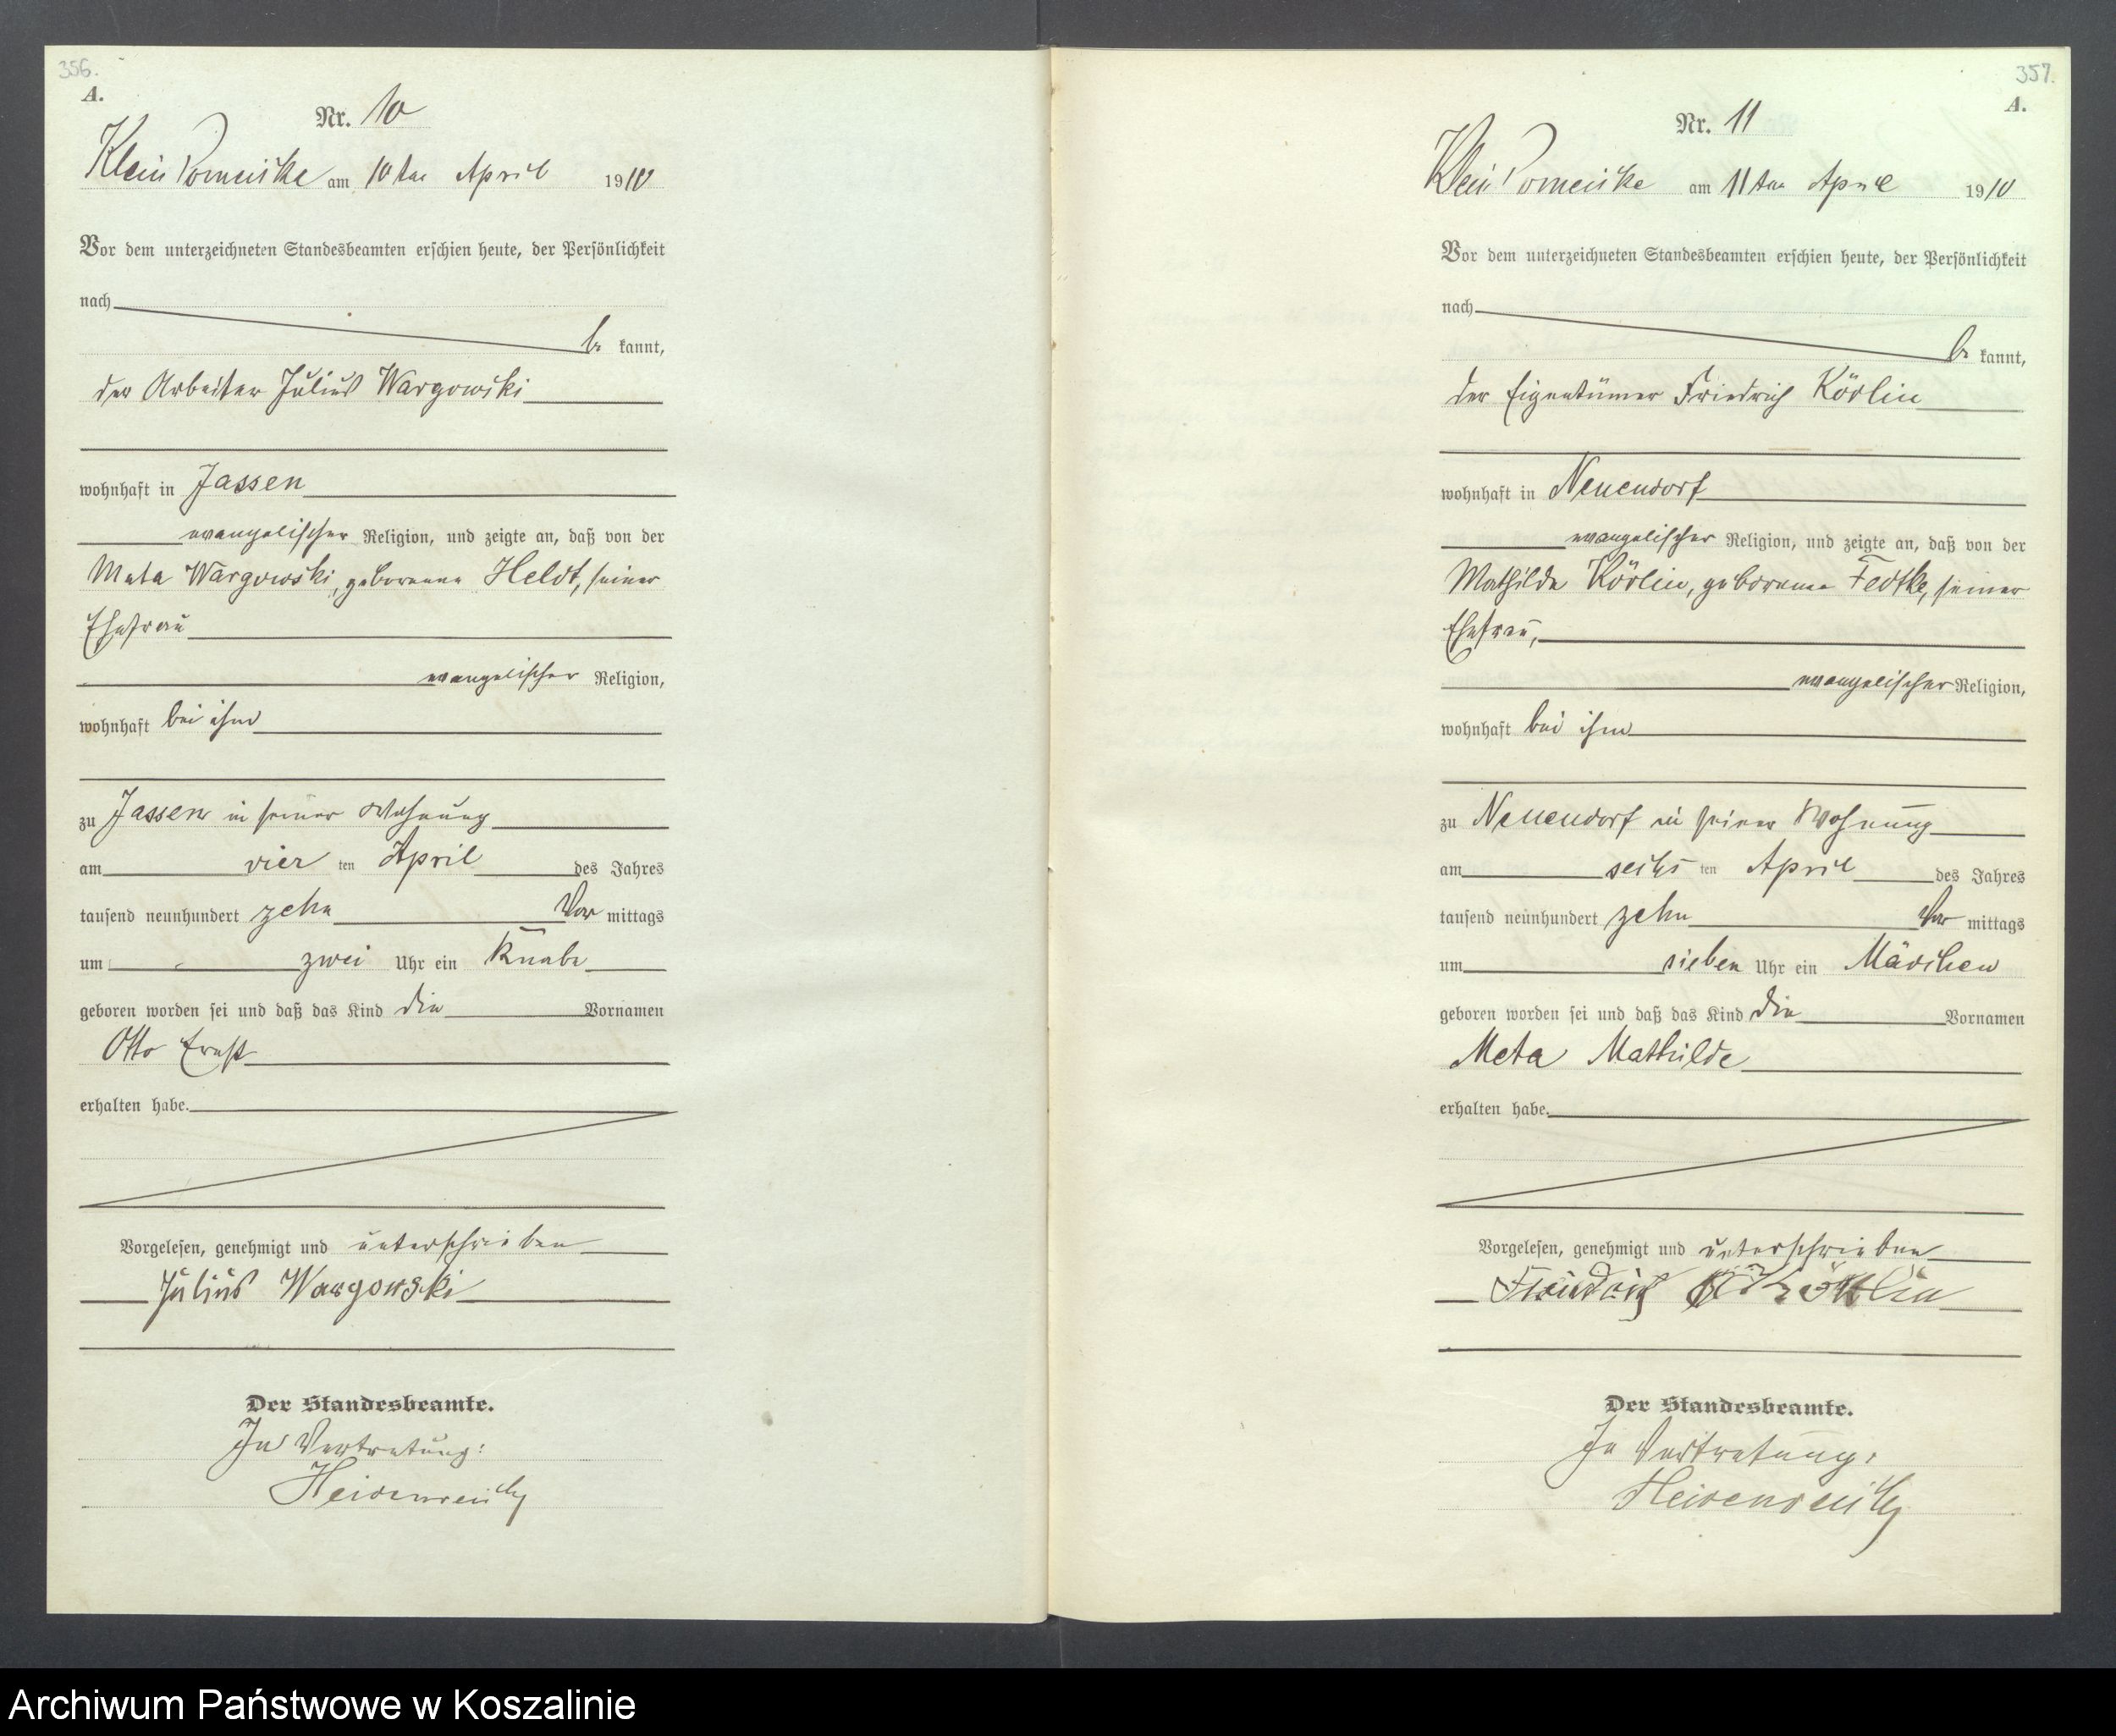 356.
A.
Nr. 10
Klein Pomeiske am 10ten April 1910
Vor dem unterzeichneten Standesbeamten erschien heute, der Persönlichkeit
nach
be kannt,
der Arbeiter Julius Wargowski
wohnhaft in Jassen
evangelischer Religion, und zeigte an, daß von der
Meta Wargowski, geborenen Heldt, seiner
Ehefrau
evangelischer Religion,
wohnhaft bei ihm
zu Jassen in seiner Wohnung
am vier ten April des Jahres
tausend neunhundert zehn Vor mittags
um zwei Uhr ein Knabe
geboren worden sei und daß das Kind die Vornamen
Otto Ernst
erhalten habe.
Vorgelesen, genehmigt und unterschrieben
Julius Wargowski
Der Standesbeamte.
In Vertretung:
Heidenreich
357.
A.
Nr. 11
Klein Pomeiske am 11ten April 1910
Vor dem unterzeichneten Standesbeamten erschien heute, der Persönlichkeit
nach
be kannt,
der Eigentümer Friedrich Körlin
wohnhaft in Neuendorf
evangelischer Religion, und zeigte an, daß von der
Mathilde Körlin, geborene Fedtke, seiner
Ehefrau,
evangelischer Religion,
wohnhaft bei ihm
zu Neuendorf in seiner Wohnung
am sechs ten April des Jahres
tausend neunhundert zehn Vor mittags
um sieben Uhr ein Mädchen
geboren worden sei und daß das Kind die Vornamen
Meta Mathilde
erhalten habe.
Vorgelesen, genehmigt und unterschrieben
Friedrich Körlin
Der Standesbeamte.
In Vertretung:
Heidenreich
Archiwum Państwowe w Koszalinie